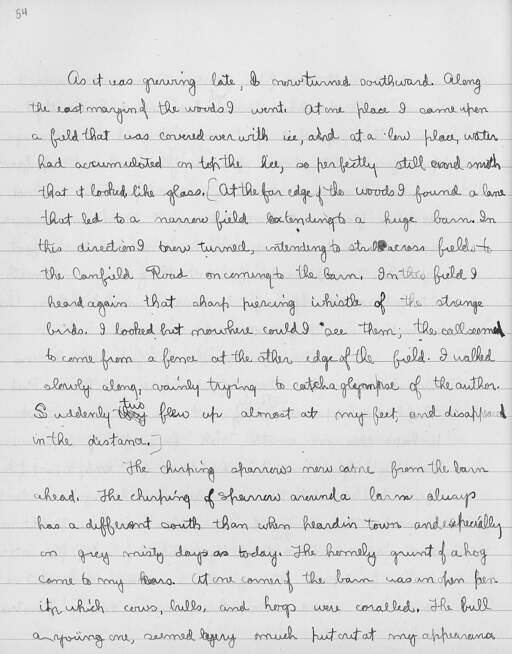 54
As it was growing late, I now turned southward. Along
the east margin of the woods I went. At one place I came upon
a field that was covered over with ice, and at a low place, water
had accumulated on top the ice, so perfectly still and smooth
that it looked like glass. [At the far edge of the woods I found a lane
that led to a narrow field extending to a huge barn. In
this direction I turned, intending to strike across fields to
the Canfield Road on coming to the barn. In this field I
heard again that sharp piercing whistle of the strange
birds. I looked but nowhere could I see them; the call seemed
to come from a fence at the other edge of the field. I walked
slowly along, vainly trying to catch a glympse of the author.
Suddenly two flew up almost at my feet, and disappeared
in the distance.]
The chirping sparrows now came from the barn
ahead. The chirping of sparrow around a barn always
has a different south than when heard in town and especially
on grey misty days as today. The homely grunt of a hog
came to my ears. At one corner of the barn was an open pen
in which cows, bulls, and hogs were coralled. The bull
a young one, seemed very much put out at my appearance